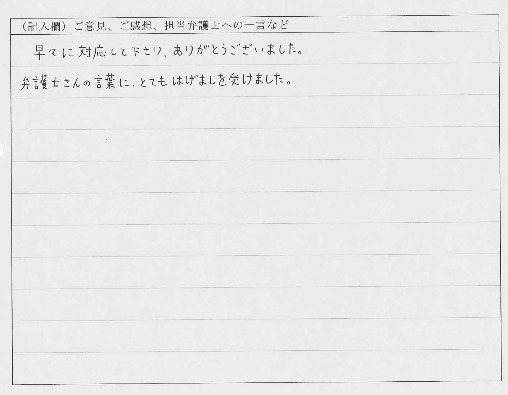 (記入欄)ご意見、ご感想、担当弁護士への一言など
早々に対応して下さり、ありがとうございました。
弁護士さんの言葉に、とてもはげましを受けました。